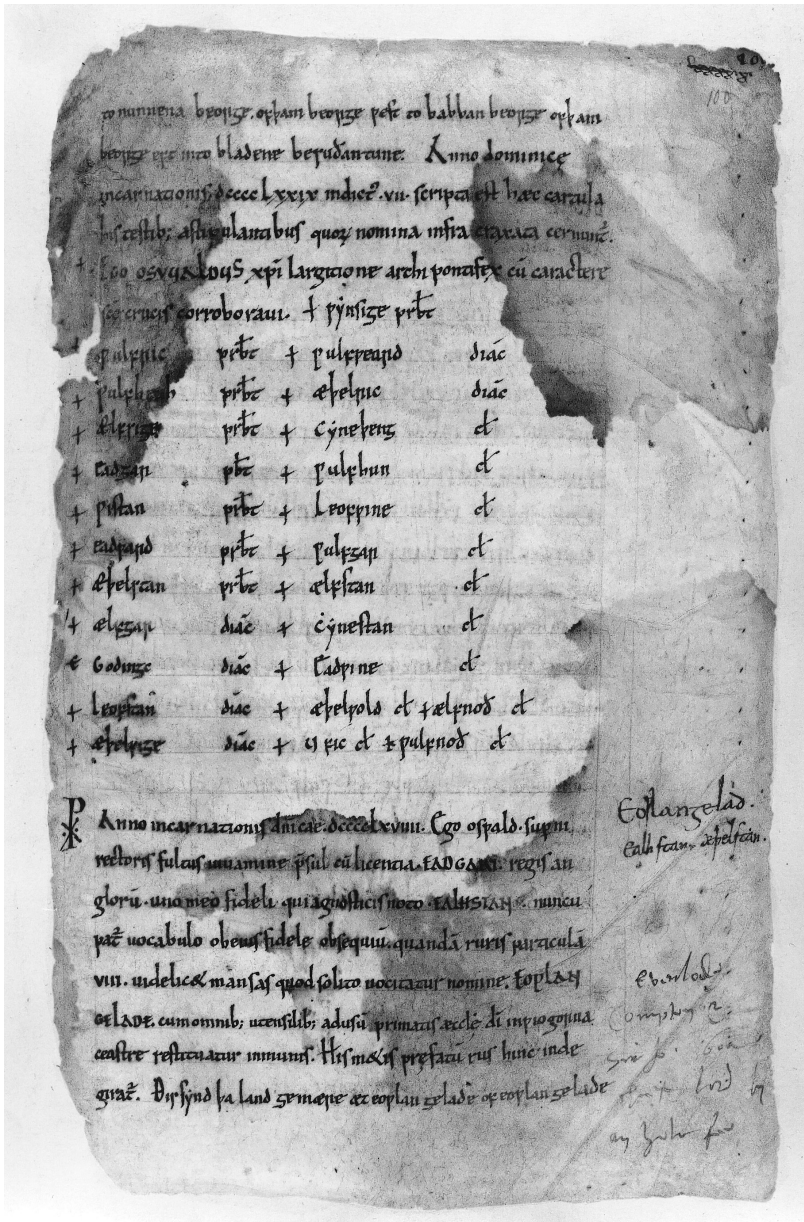 to nunnena beorge. of þam beorge þæst to babban beorge of þam
beorge eft into bladene be suðan tune. Anno dominicę
incarnationis. dcccc lxxix indict̄ .vii. scripta est hæc cartula
his testib; astipulantibus quoꝝ nomina infra craxata cernunt̄.
+ Ego OSǷALDUS xp̄i largitione archi pontifex cū caractere
sc̄ę crucis corroboraui. + ƿẏnsige prb̄t
ƿulfric prb̄t + ƿulfƿeard diac̄
+ ƿulfheah prb̄t + æþelric diac̄
+ Ælfsige prb̄t + Cẏneþegn cł
+ Eadgar pb̄t + ƿulfhun cł
+ ƿistan prb̄t + Leofƿine cł
+ Eadƿard prb̄t + ƿulfgar cł
+ Æþelstan prb̄t + ælfstan cł
+ ælfgar diac̄ + cẏnestan cł
+ Godingc diac̄ + Eadƿine cł
+ Leofstan diac̄ + æþelƿold cł + ælfnoð cł
+ æþelsige diac̄ + ric cł + ƿulfnoð cł
⳩ Anno incarnationis dn̄icae. dcccc lxviiii. Ego osƿald. supni
rectoris fultus iuuamine p̄sul cū licentia EADGARI regis an
glorū. uno meo fideli qui a gnosticis noto EALHSTAN nuncu
pat̄ uocabulo ob eius fidele obsequiū. quandā ruris particulā
viii. uidelic& mansas quod solito uocitatur nomine. EOFLAN
GELADE. cum omnib; utensilib; ad usū primatis æccłę dī in ƿiogorna
ceastre restituatur inmunis. His m&is pręfatū rus hinc inde
girat̄. Ðis sẏnd þa land gemære æt eoƿlangelade of eoƿlangelade
100
Eoƿlangelad.
Ealhstan. æþelstan.
Evenlode
Compton in